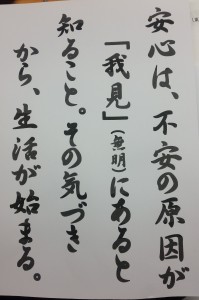 安心は、不安の原因が
「我見」(無明)にあると
知ること。その気づき
から、生活が始まる。